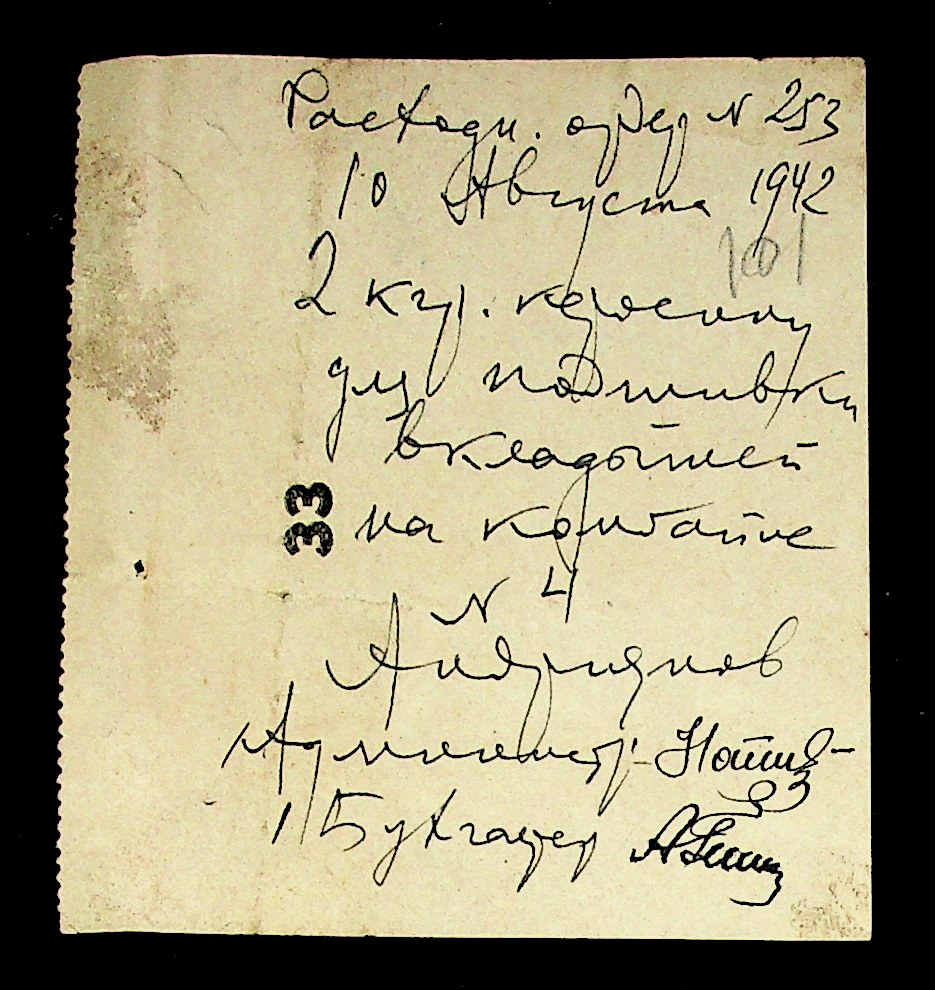 Расходн. ордер N 253
10 Августа 1942
101
2 кгр. керосину
для подшивки
вкладышей
33
на комбайне
N 4
Андриянов
Администр.
Бухгалтер